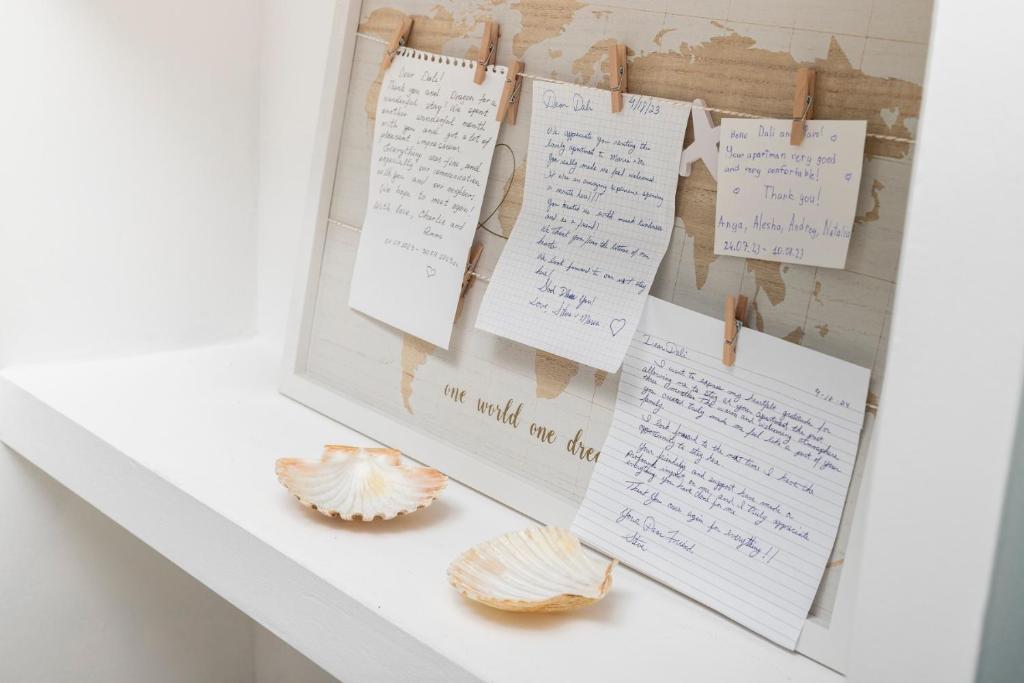 Dear Dali!
Thank you and Dragon for a
wonderful stay! We spent
another wonderful month
with you and got a lot of
pleasant impressions.
Everything was fine, and
especially our communication
with you and our neighbors.
We hope to meet again!
With love, Charlie and
Dear Dali 4/18/23
We appreciate you renting the
lovely apartment to Maria & Me
You really made us feel welcomed.
It was an amazing experience spending
a month here!!!
You treated us with much kindness
and as a friend!
We thank you from the bottom of our
hearts
We look forward to our next stay
here!
God Bless You!
Love, Steve & Maria
Hello Dali and
Your apartman very good
and very confortable!
Thank you!
Anya, Alesha, Andrey, Natalia
24.07.23 - 10.08.23
Dear Dali 4-18-24
I want to express my heartfelt gratitude for
allowing me to stay at your apartment the past
three months. The warm and welcoming atmosphere
you created truly made me feel like a part of your
family.
I look forward to the next time I have the
opportunity to stay here
Your friendship and support have made a
profound impact on me, and I truly appreciate
everything you have done for me
Thank you once again for everything!!
Your Dear Friend
Steve
one world one dre